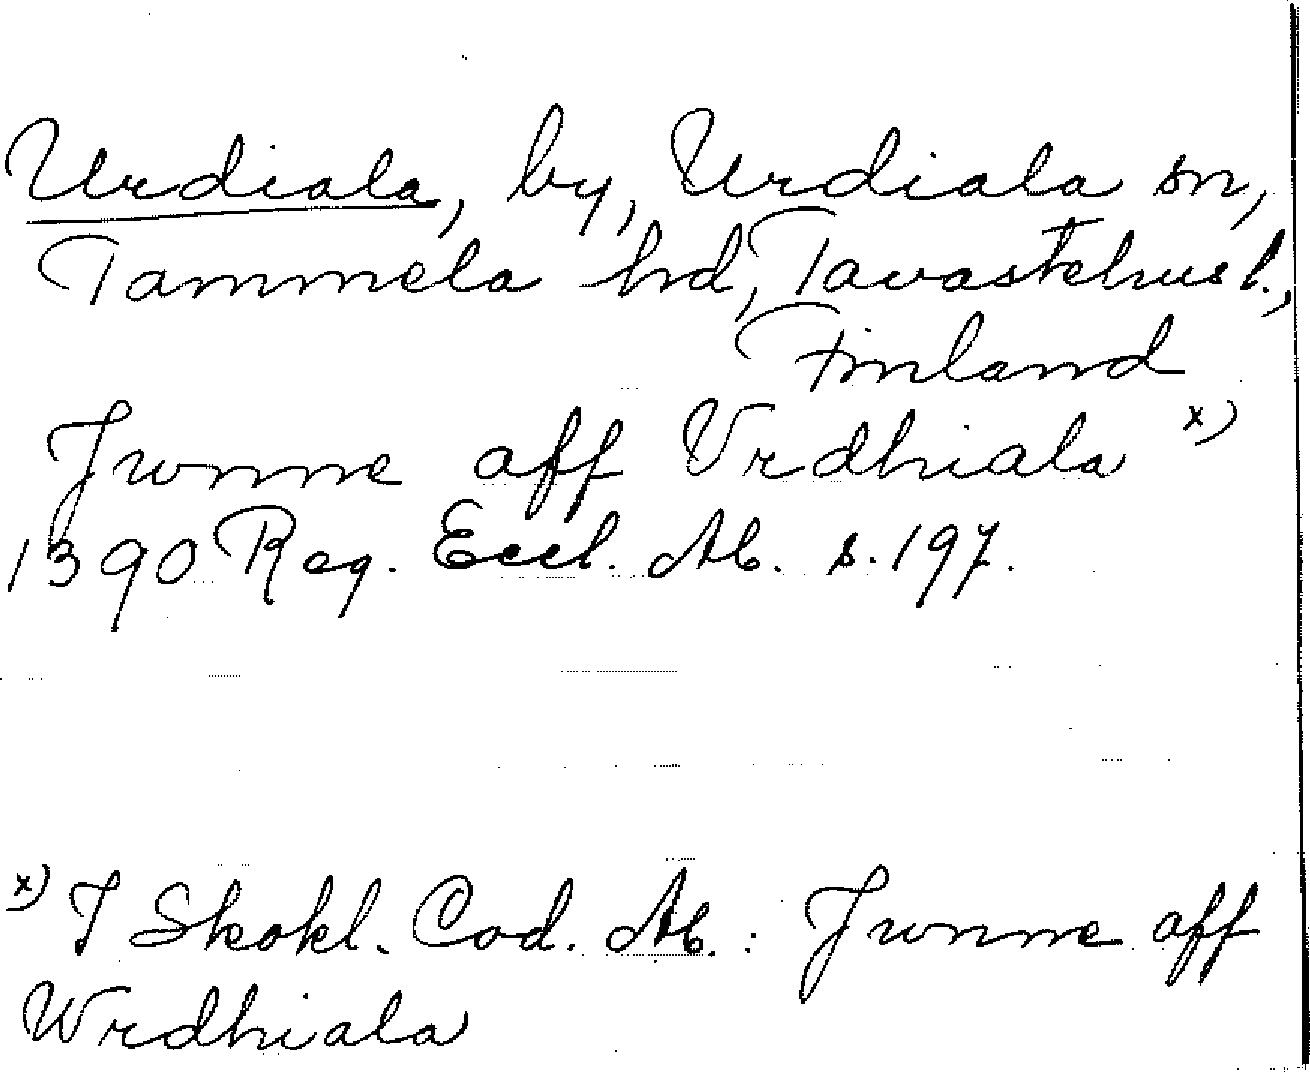 Urdiala, by, Urdiala sn,
Tammela hd, Tavastehus l.,
Finland
Jwnne aff Vrdhiala x)
1390 Reg. Eccl. Ab. s. 197.
x) I Skokl. Cod. Ab.: Jwnne aff
Wrdhiala